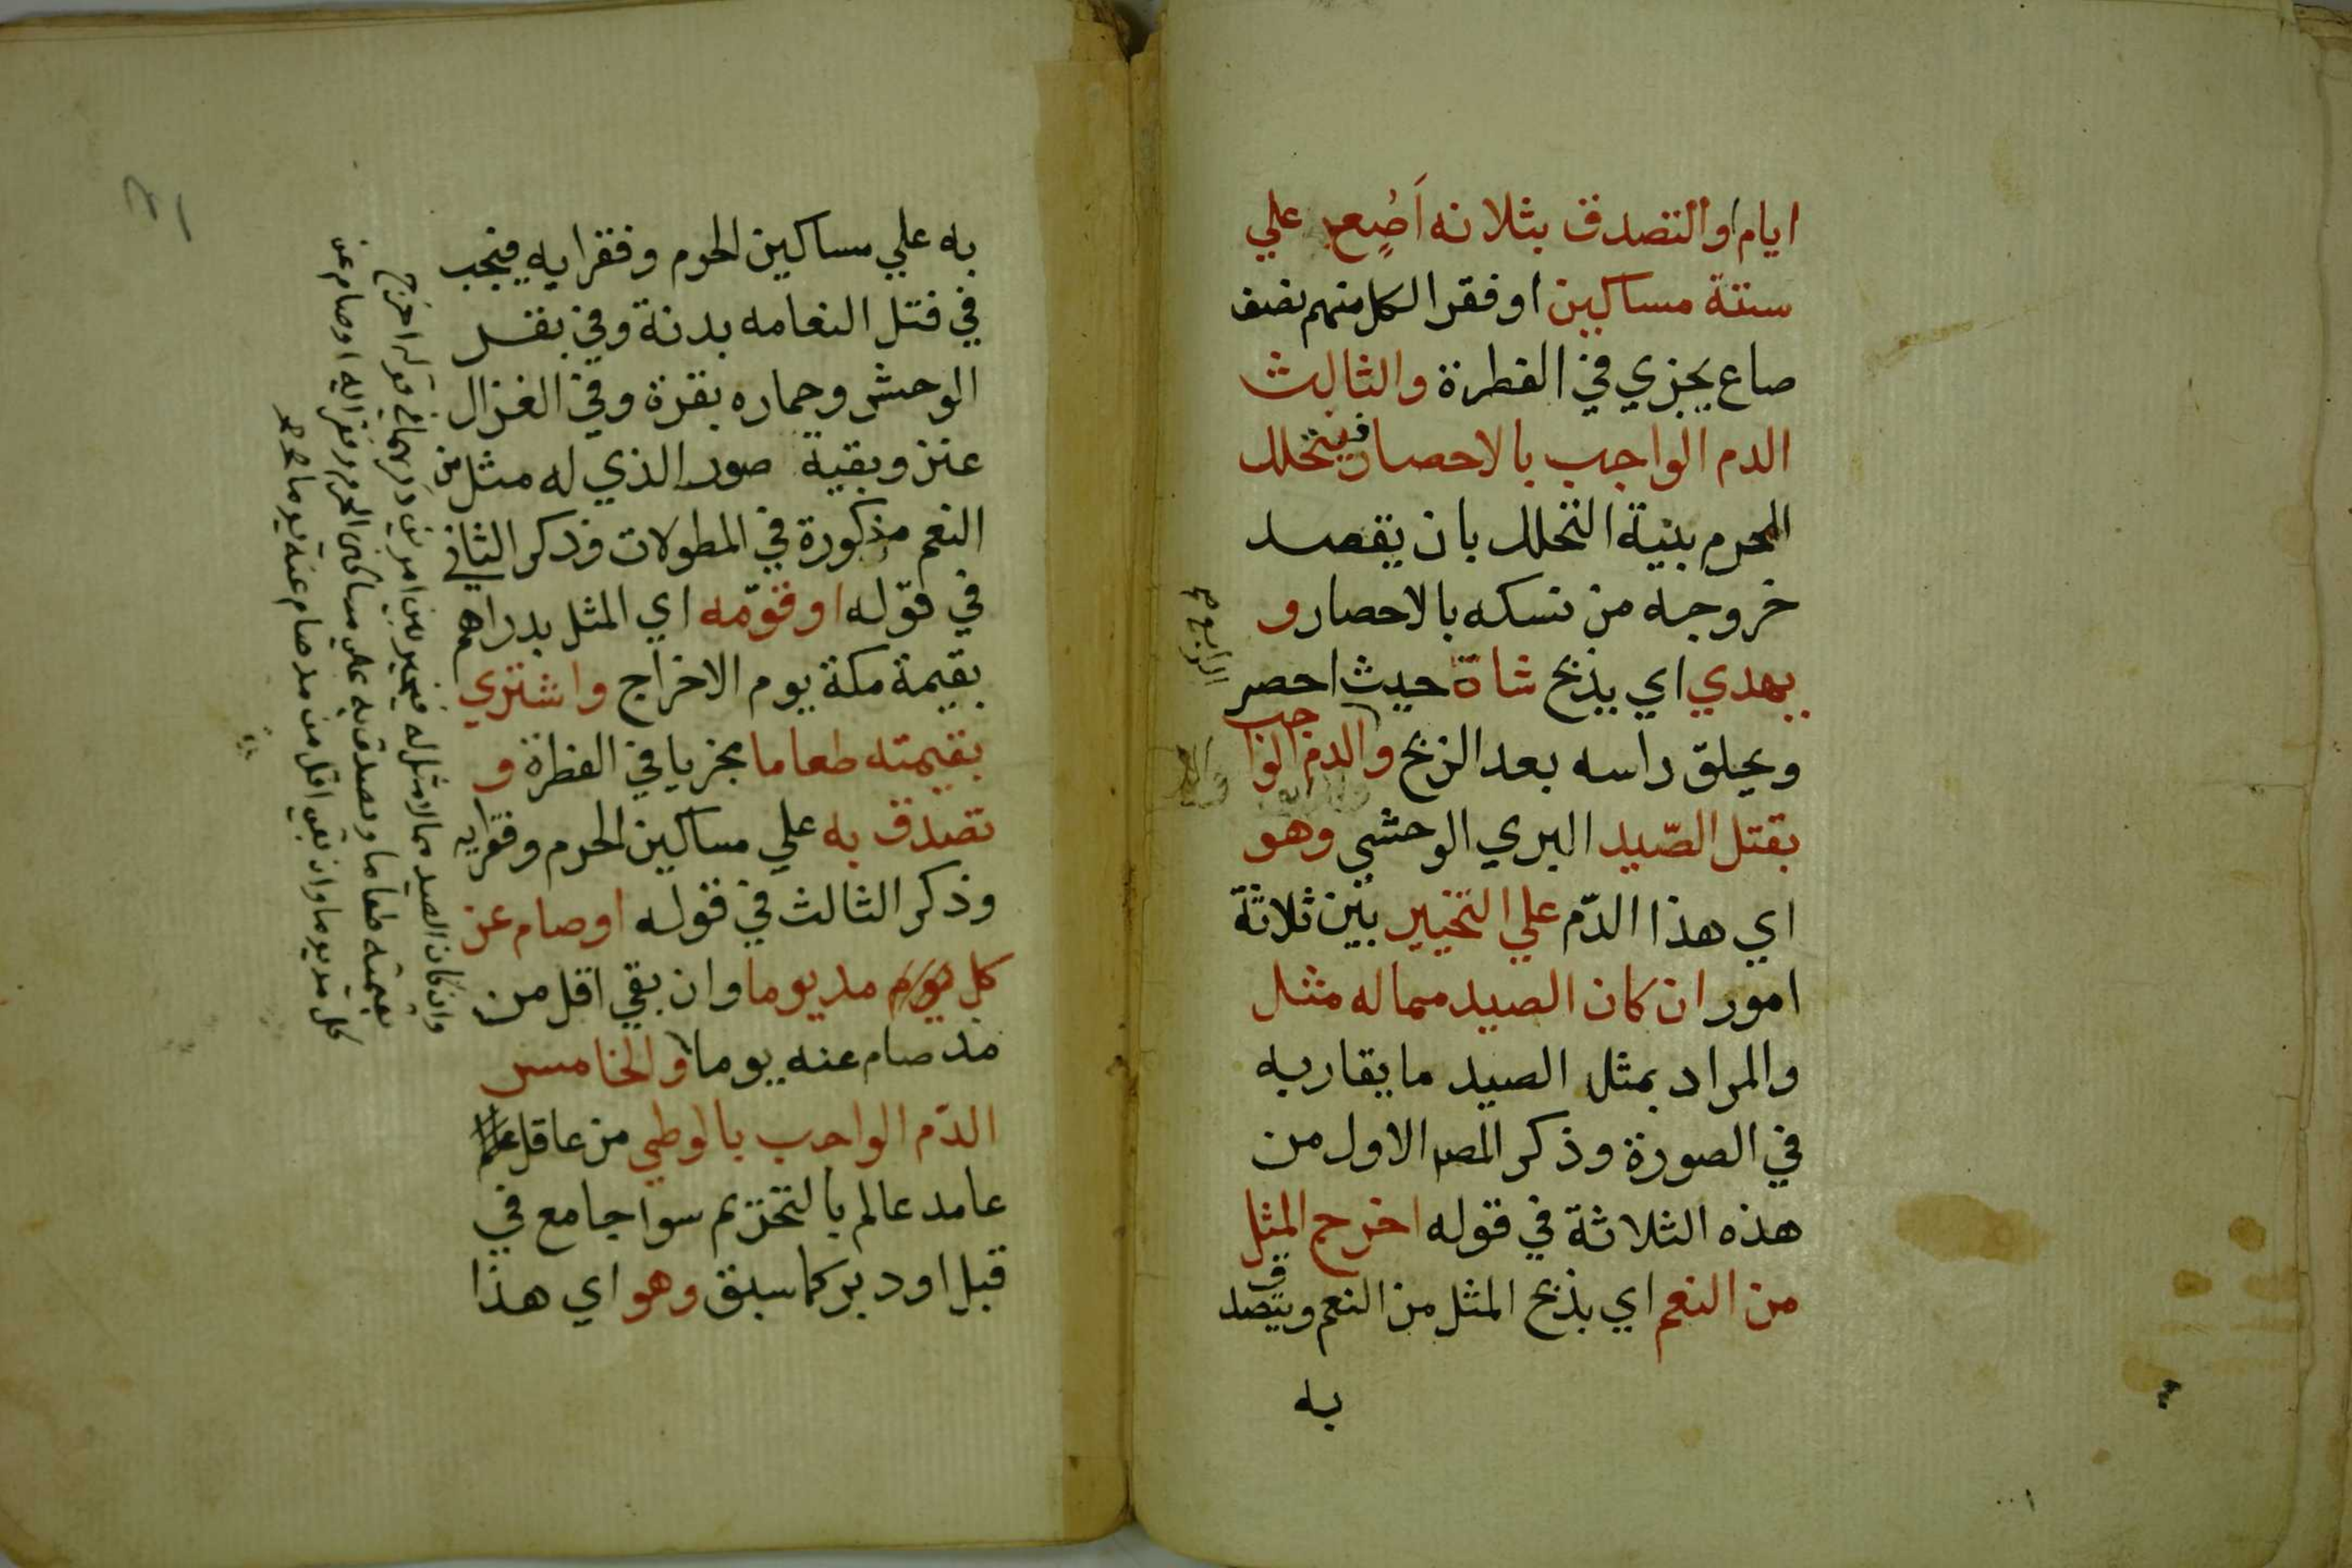 ايام او التصدق بثلاثه اَصُع علي
ستة مساكين او فقرا لكل منهم نصف
صاع يجزي في الفطرة والثالث
الدم الواجب بالاحصار فيتحلل
المحرم بنية التحلل بان يقصد
خروجه من نسكه بالاحصار و
يهدي اي يذبح شاة حيث احصر
ويحلق راسه بعد الذبح والدم الواجب
بقتل الصّيد البري الوحشي وهو
اي هذا الدّم علي التخيير بين ثلاثة
امور ان كان الصيد مما له مثل
والمراد بمثل الصيد ما يقاربه
في الصورة وذكر المصـ الاول من
هذه الثلاثة في قوله اخرج المثل
من النعم اي يذبح المثل من النعم ويتصدق
به
الرابع صح
به علي مساكين الحرم وفقرايه فيجب
في قتل النعامه بدنة وفي بقر
الوحش وحماره بقرة وفي الغزال
عنز وبقية صور الذي له مثل من
النعم مذكورة في المطولات وذكر الثاني
في قوله او قوّمه اي المثل بدراهم
بقيمة مكة يوم الاخراج واشتري
بقيمته طعاما مجزيا في الفطرة و
تصدق به علي مساكين الحرم وفقرايه
وذكر الثالث في قوله او صام عن
كل مد يوما وان بقي اقل من
مد صام عنه يوما والخامس
الدّم الواجب بالوطي من عاقل
عامد عالم بالتحريم سوا جامع في
قبل او دبر كما سبق وهو اي هذا
وان كان الصيد مما لا مثل له فيتخير بين امرين ذكرهما في قوله اخرج
بقيمته طعاما وتصدق به علي مساكين الحرم وفقرايه او صام عن
كل مد يوما وان بقي اقل من مد صام عنه يوما